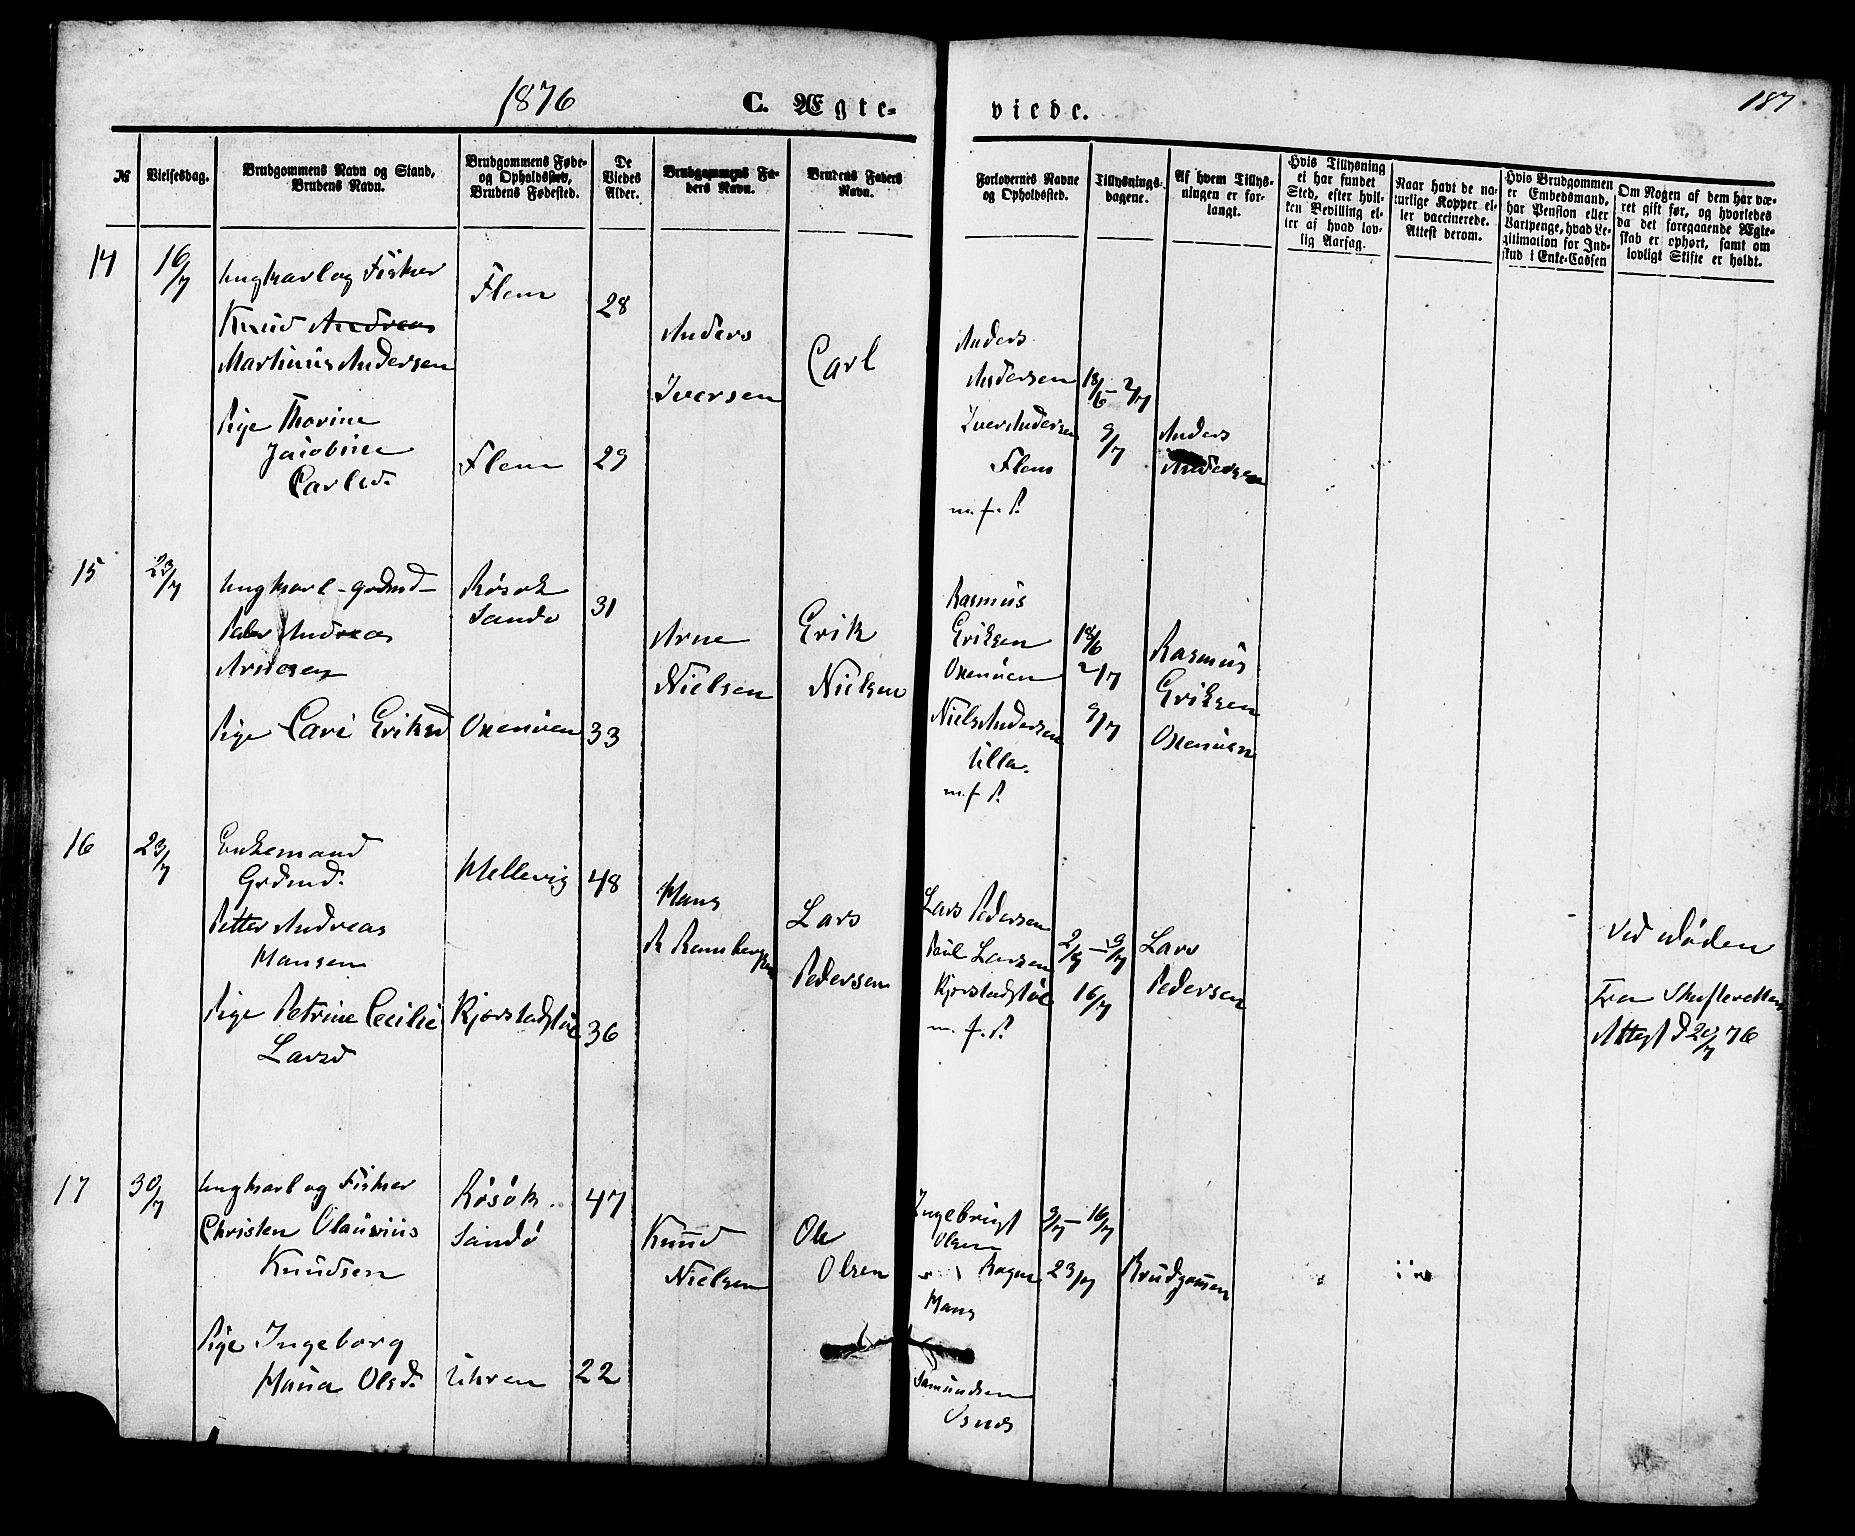 1876 C. Ægte-viede. 187
№
Vielsesdag.
Brudgommens Navn og Stand,
Brudens Navn.
Brudgommens Føde-
og Opholdssted,
Brudens Fødested.
De
Viedes
Alder.
Brudgommens Fa-
ders Navn.
Brudens Faders
Navn.
Forlovernes Navne
og Opholdssted.
Tillysnings-
dagene.
Af hvem Tillys-
ningen er for-
langt.
Hvis Tillysning
ei har fundet
Sted, efter hvil-
ken Bevilling el-
ler af hvad lov-
lig Aarsag.
Naar havt de na-
turlige Kopper el-
ler vaccinerede.
Attest derom.
Hvis Brudgommen
er Embedsmand,
har Pension eller
Vartpenge, hvad Le-
gitimation for Ind-
skud i Enke-Cassen
Om Nogen af dem har væ-
ret gift før, og hvorledes
da det foregaaende Ægte-
skab er ophørt, samt om
lovligt Skifte er holdt.
14
16/7
Ungkarl og Fisker
Knud Andreas
Martinus Andersen
Pige Thorine
Jacobine
Carlsd.
Flem
Flem
28
29
Anders
Iversen
Carl
Anders
Andersen
Iver Andersen
Flem
m. f. P.
18/6 - 2/7
9/7
Anders
Andersen
15
23/7
Ungkarl - grdmd
Peder Andreas
Arnesen
Pige Cari Eriksd
Røsok
Sandø
Oxenøen
31
33
Arne
Nielsen
Erik
Nielsen
Rasmus
Eriksen
Oxenøen
Niels Andersen
Ulla.
m. f. P.
18/6
2/7
9/7
Rasmus
Eriksen
Oxenøen
16
23/7
Enkemand
Grdmd.
Petter Andreas
Hansen
Pige Petrine Cecilie
Larsd
Mellevig
Kjørstadstøe
48
36
Hans
Lars
Pedersen
Lars Pedersen
Paul Larsen
Kjørstadstøe
m. f. P.
2/7 - 9/7
16/7
Lars
Pedersen
Ved Døden
Fra Skifteretten
Attest d 20/7 76
17
30/7
Ungkarl og Fisker
Christen Olausius
Knudsen
Pige Ingeborg
Hana Olsd.
Røsøk.
Sandø
Uhren
47
22
Knud
Nielsen
Ole
Olsen
Ingebrigt
Olsen
Hans
Samundsen
Osnes
9/7 - 16/7
23/7
Brudgommen